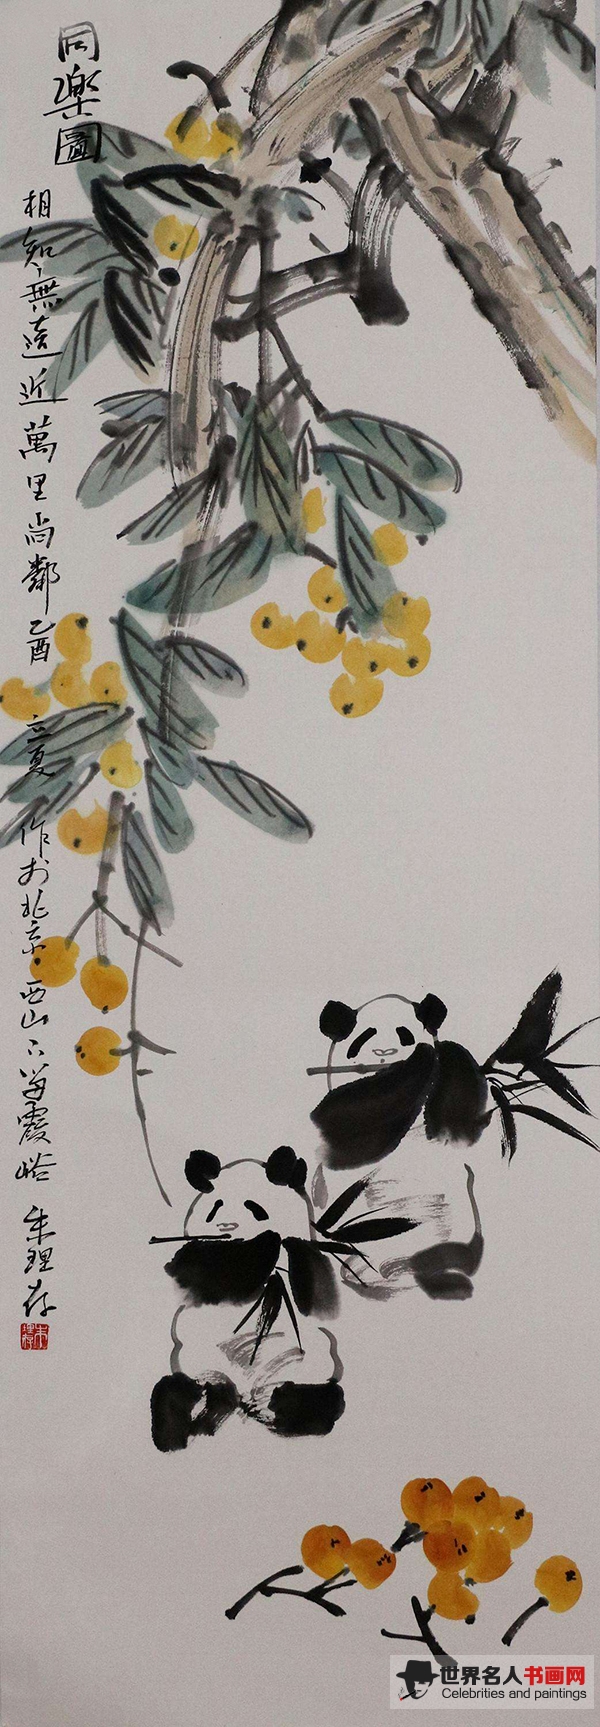 同樂圖
相知無遠近萬里尚鄰乙酉 立夏 作於北京西山下留霞峪 朱理存
朱理存
世界名人书画网
Celebrities and paintings